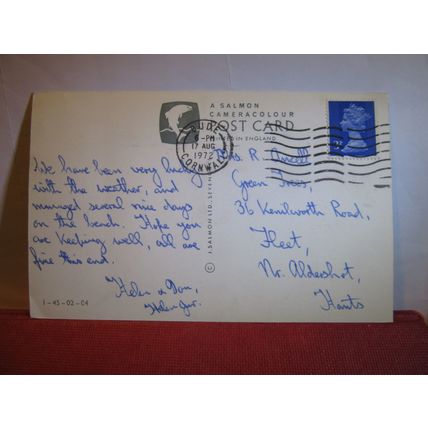 A SALMON
CAMERACOLOUR
POST CARD
PRINTED IN ENGLAND
BUDE
6-PM
17 AUG
1972
CORNWALL
We have been very lucky
with the weather, and
managed several nice days
on the beach. Hope you
are keeping well, all are
fine this end.
Helen & Don,
Helen Jnr.
1-45-02-04
© J. SALMON LTD., SEVEN
Mrs. R.
Green Trees,
36 Kenilworth Road,
Fleet,
Nr. Aldershot,
Hants